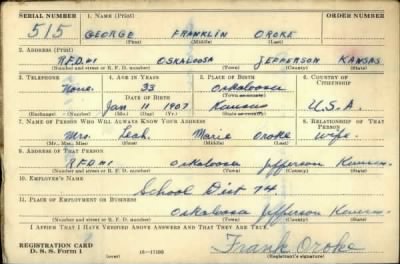 SERIAL NUMBER 1. NAME (Print) ORDER NUMBER
515 GEORGE FRANKLIN OROKE
(First) (Middle) (Last)
2. ADDRESS (Print)
R.F.D.#1 OSKALOOSA JEFFERSON KANSAS
(Number and street or R. F. D. number) (Town) (County) (State)
3. TELEPHONE 4. AGE IN YEARS 5. PLACE OF BIRTH 6. COUNTRY OF CITIZENSHIP
None. 33 Oskaloosa
DATE OF BIRTH (Town or county)
Jan 11 1907 Kansas U.S.A.
(Exchange) (Number) (Mo.) (Day) (Yr.) (State or country)
7. NAME OF PERSON WHO WILL ALWAYS KNOW YOUR ADDRESS 8. RELATIONSHIP OF THAT PERSON
Mrs. Leah. Marie Oroke Wife.
(Mr., Mrs., Miss) (First) (Middle) (Last)
9. ADDRESS OF THAT PERSON
R.F.D #1 Oskaloosa Jefferson Kansas
(Number and street or R. F. D. number) (Town) (County) (State)
10. EMPLOYER'S NAME
School Dist 74
11. PLACE OF EMPLOYMENT OR BUSINESS
Oskaloosa Jefferson Kansas
(Number and street or R. F. D. number) (Town) (County) (State)
I AFFIRM THAT I HAVE VERIFIED ABOVE ANSWERS AND THAT THEY ARE TRUE.
REGISTRATION CARD Frank Oroke
D. S. S. Form 1 (over) (Registrant's signature)